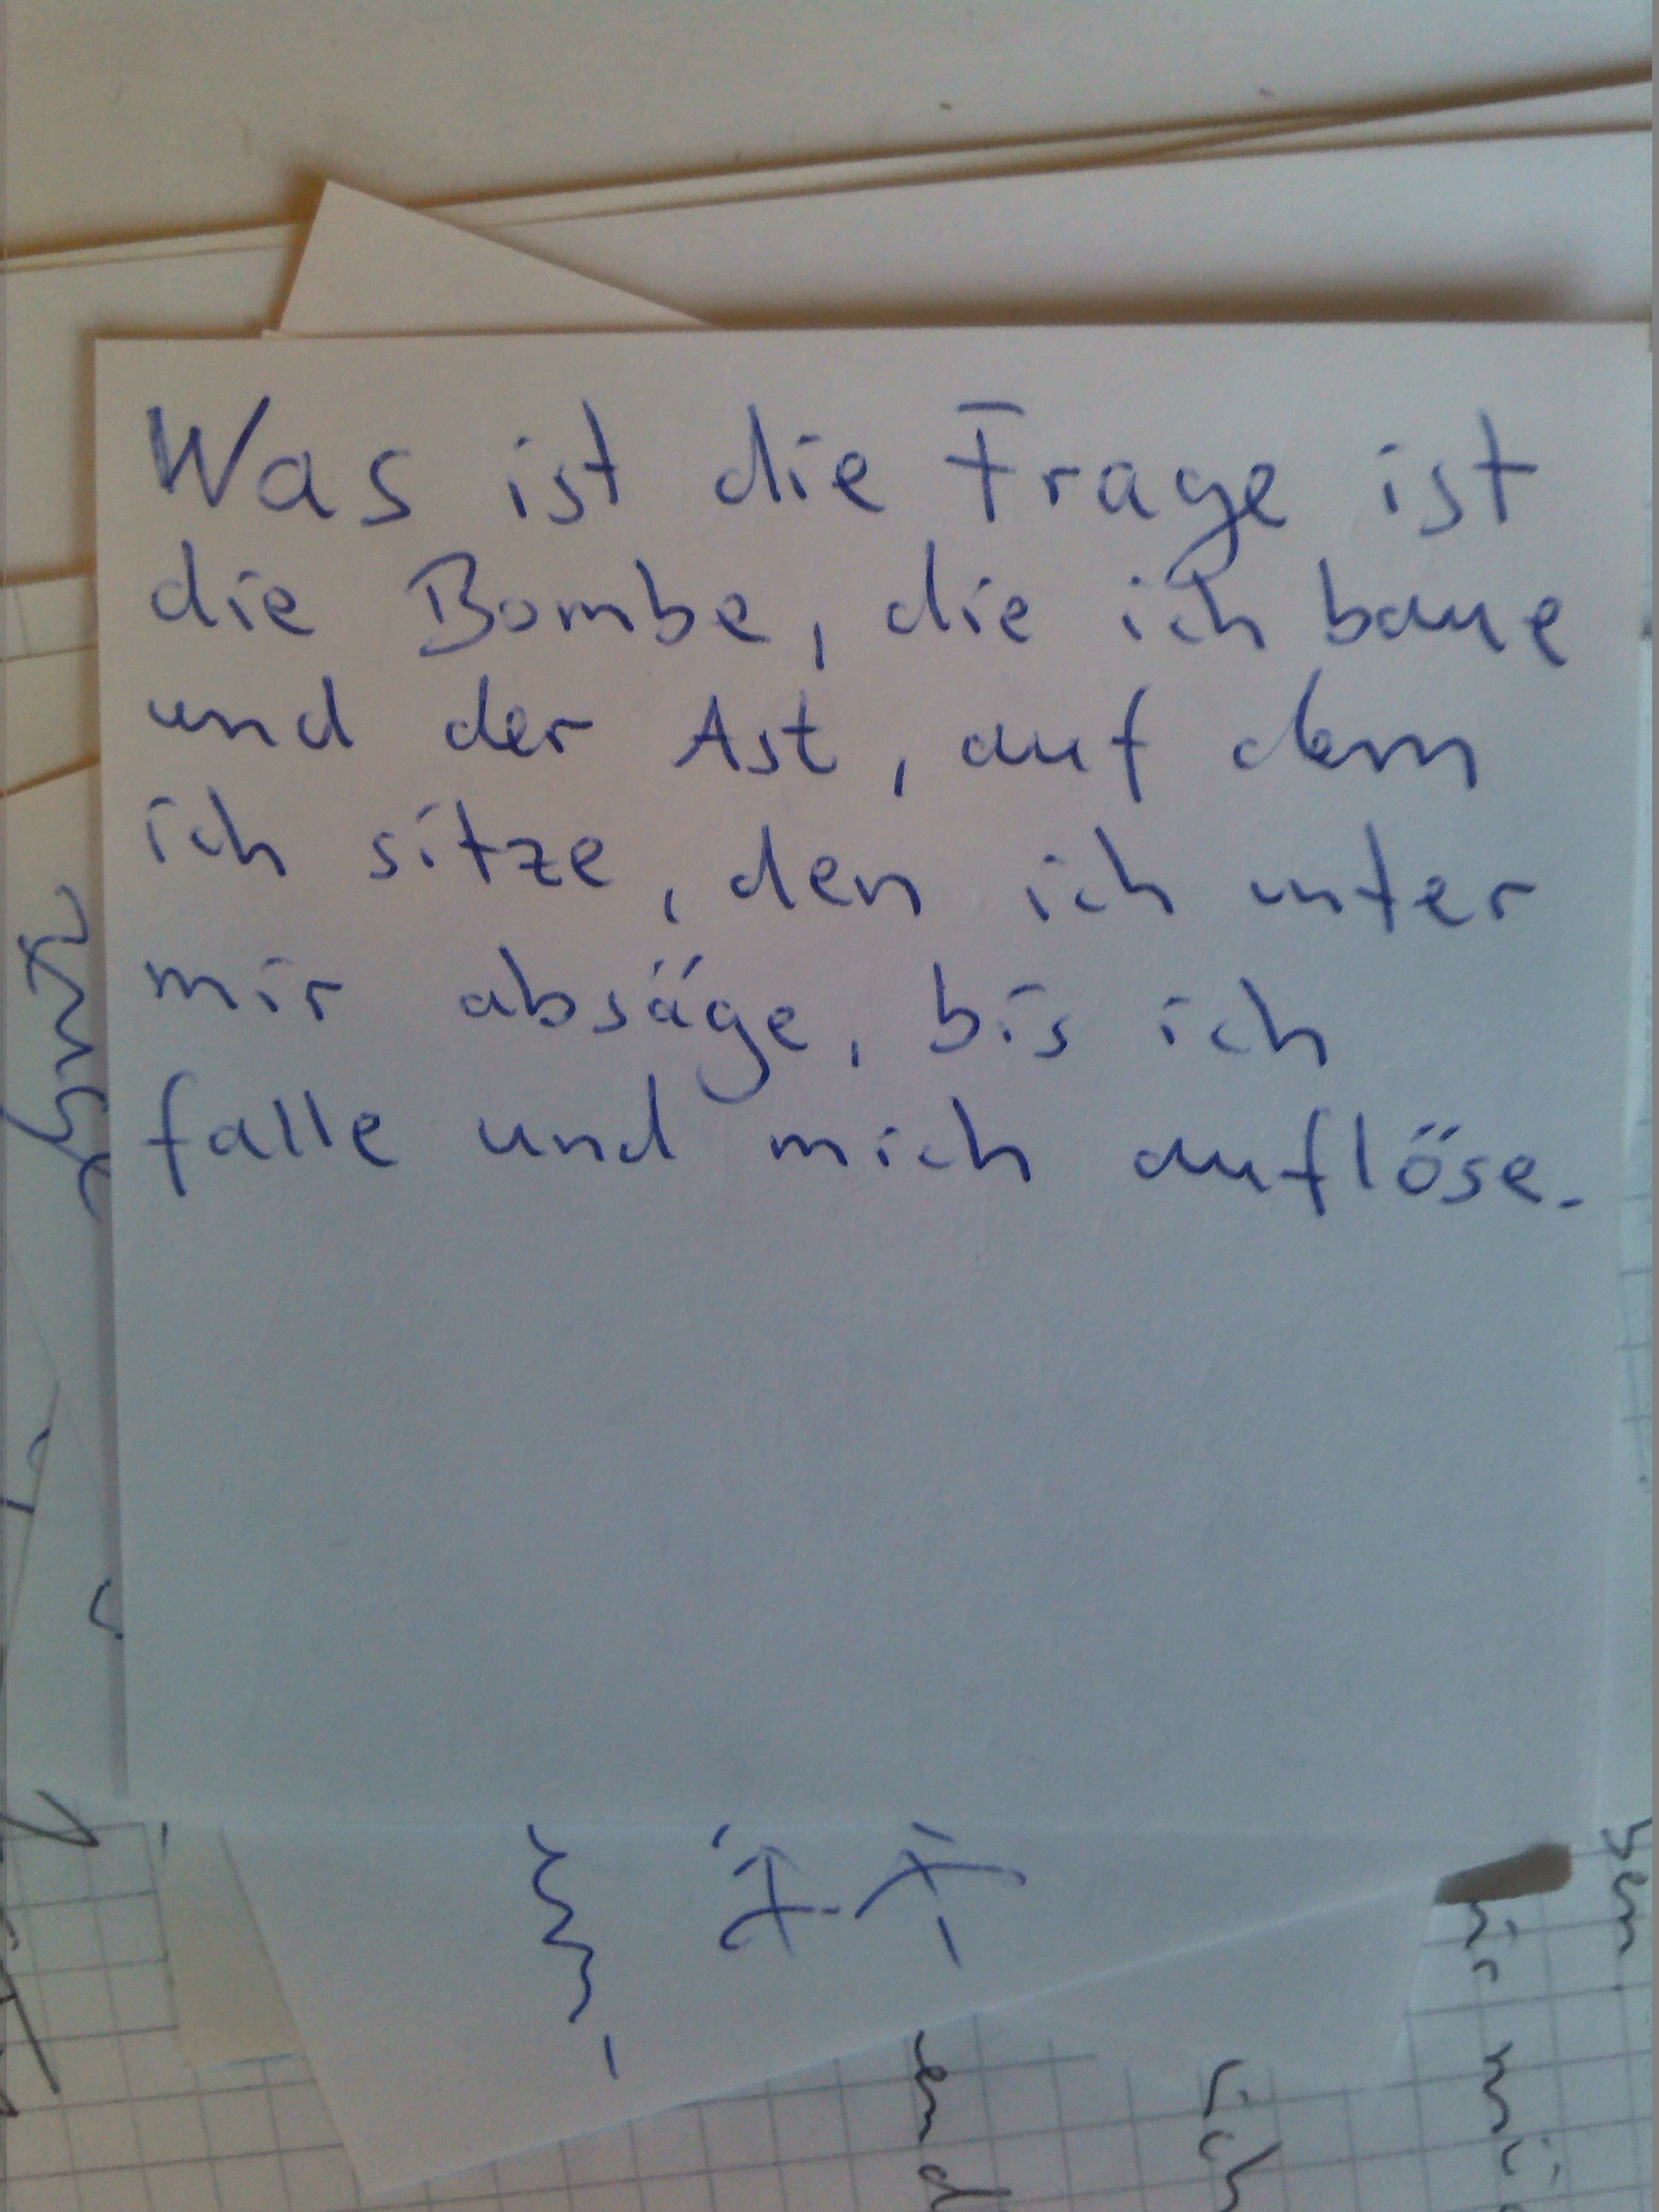 Was ist die Frage ist
die Bombe, die ich baue
und der Ast, auf dem
ich sitze, den ich unter
mir absäge, bis ich
falle und mich auflöse.
end
ich